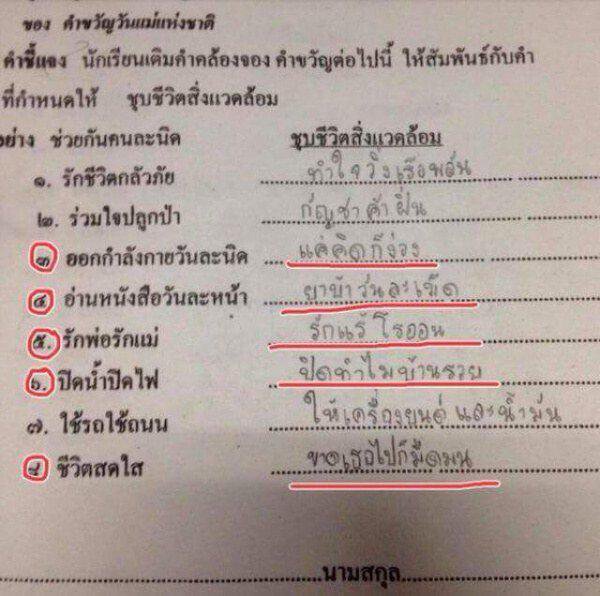 ของ คำขวัญวันแม่แห่งชาติ
คำชี้แจง นักเรียนเติมคำคล้องจอง คำขวัญต่อไปนี้ ให้สัมพันธ์กับคำ
ที่กำหนดให้ ชุบชีวิตสิ่งแวดล้อม
อย่าง ช่วยกันคนละนิด ชุบชีวิตสิ่งแวดล้อม
๑. รักชีวิตกลัวภัย ทำใจวิ่ง
๒. ร่วมใจปลูกป่า กัญชาค้าฝิ่น
๓. ออกกำลังกายวันละนิด แค่คิดก็ง่วง
๔. อ่านหนังสือวันละหน้า ยาบ้าวันละเม็ด
๕. รักพ่อรักแม่ รักแร้โรออน
๖. ปิดน้ำปิดไฟ ปิดทำไมบ้านรวย
๗. ใช้รถใช้ถนน ให้เครื่องยนต์ และน้ำมัน
๘. ชีวิตสดใส ขาดเธอไปก็มืดมน
นามสกุล